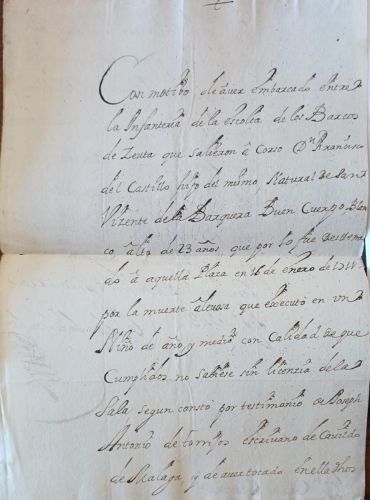 Con motibo de aver embarcado entre
la Infanteria de la escolta de los Barcos
de Zeuta que salieron â Corso Dn Francisco
del Castillo hijo del mismo, Natural de San
Vizente de la Barquera Buen Cuerpo, Blan
co, alto, de 23 años, que por lo fue Desterra
do â aquella Plaza en 16 de enero de
por la muerte alevosa que executò en un
Niño de año, y medio con Calidad de que
Cumplidos, no saliese sin licencia de la
Sala segun constò por testimonio de Joseph
Antonio de Torrijos escrivano de Cavildo
de Malaga, y de aver tocado en